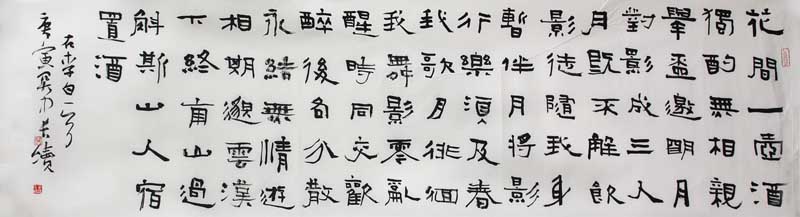 花間一壺酒
獨酌無相親
舉盃邀明月
對影成三人
月既不解飲
影徒隨我身
暫伴月將影
行樂須及春
我歌月徘徊
我舞影零亂
醒時同交歡
醉後各分散
永結無情遊
相期邈雲漢
下終南山過
斛斯山人宿
置酒
右李白一首
庚寅